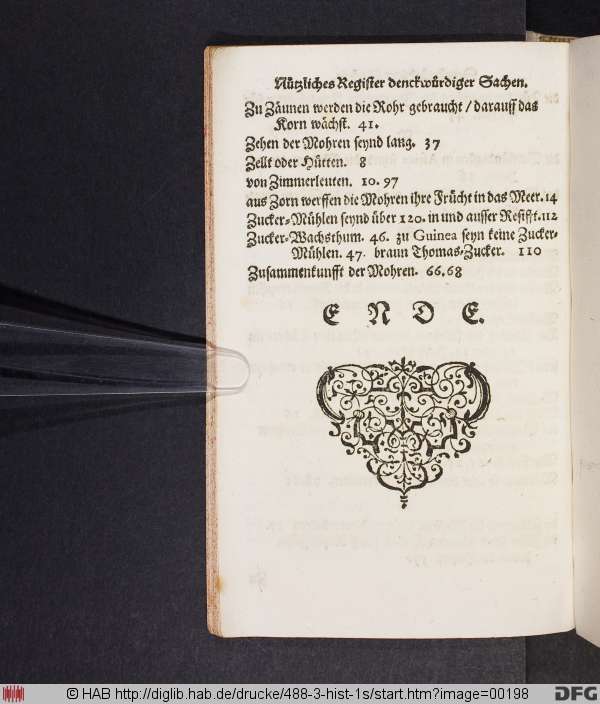 Nützliches Register denckwürdiger Sachen.
Zu Zäunen werden die Rohr gebraucht / darauff das
Korn wächst. 41.
Zehen der Mohren seynd lang. 37
Zellt oder Hütten. 8
von Zimmerleuten. 10. 97
aus Zorn werffen die Mohren ihre Frücht in das Meer. 14
Zucker-Mühlen seynd über 120. in und ausser Resifft. 112
Zucker-Wachsthum. 46. zu Guinea seyn keine Zucker-
Mühlen. 47. braun Thomas-Zucker. 110
Zusammenkunfft der Mohren. 66. 68
E N D E.
© HAB http://diglib.hab.de/drucke/488-3-hist-1s/start.htm?image=00198
DFG